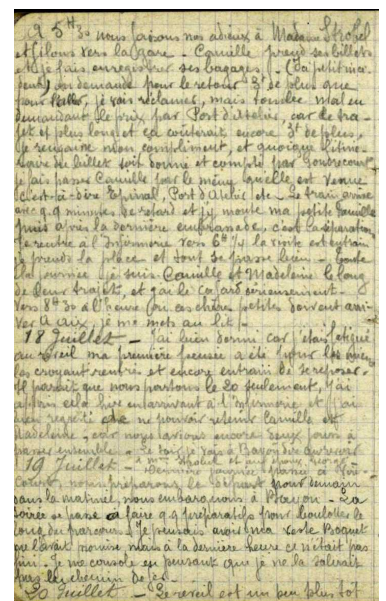 A 5H30 nous faisons nos adieux à Madame Strohel
et filons vers la gare - Camille prend ses billets
et je fais enregistrer ses bagages - (Un petit inci-
dent) on demande pour le retour 3f de plus que
pour l'aller, je vais réclamer, mais tombe mal en
demandant le prix par Port d'Atelier, car le tra-
jet est plus long et ça coûterait encore 3f de plus,
je rengaine mon compliment, et quoique l'itiné-
raire du billet soit donné et compté par Gondrecourt
je fais passer Camille par le même qu'elle est venue
c'est-à-dire Epinal, Port d'Atelier etc - Le train arrive
avec q.q minutes de retard et j'y monte ma petite famille
puis après la dernière embrassade, c'est la séparation
Je rentre à l'Infirmerie vers 6H 1/4 la visite est en train
je prends la place et tout se passe bien - Toute
la journée je suis Camille et Madeleine le long
de leur trajet, et j'ai le cafard sérieusement
Vers 8H30 à l'heure où ces chères petites doivent arri-
ver à Aix, je me mets au lit -
18 Juillet - J'ai bien dormi car j'étais fatigué
au réveil ma première pensée a été pour les miens
les croyant rentrés et encore en train de se reposer -
Il paraît que nous partons le 20 seulement, j'ai
appris cela hier en arrivant à l'infirmerie et j'ai
bien regretté de ne pouvoir retenir Camille et
Madeleine, car nous avions encore deux jours à
passer ensemble - Le soir je vais à Bayon dire au revoir
à Mme Strohel et
19 Juillet - Dernière journée passée à
court, nous préparons le départ pour demain
dans la matinée, nous embarquons à Bayon - La
soirée se passe à faire q.q préparatifs pour boulotter le
long du parcours - Je pensais avoir ma veste Boquet
me l'avait promise, mais à la dernière heure ce n'était pas
fini - Je me console en pensant que je ne la salirais
pas en chemin de fer -
20 Juillet - Le réveil est un peu plus tôt